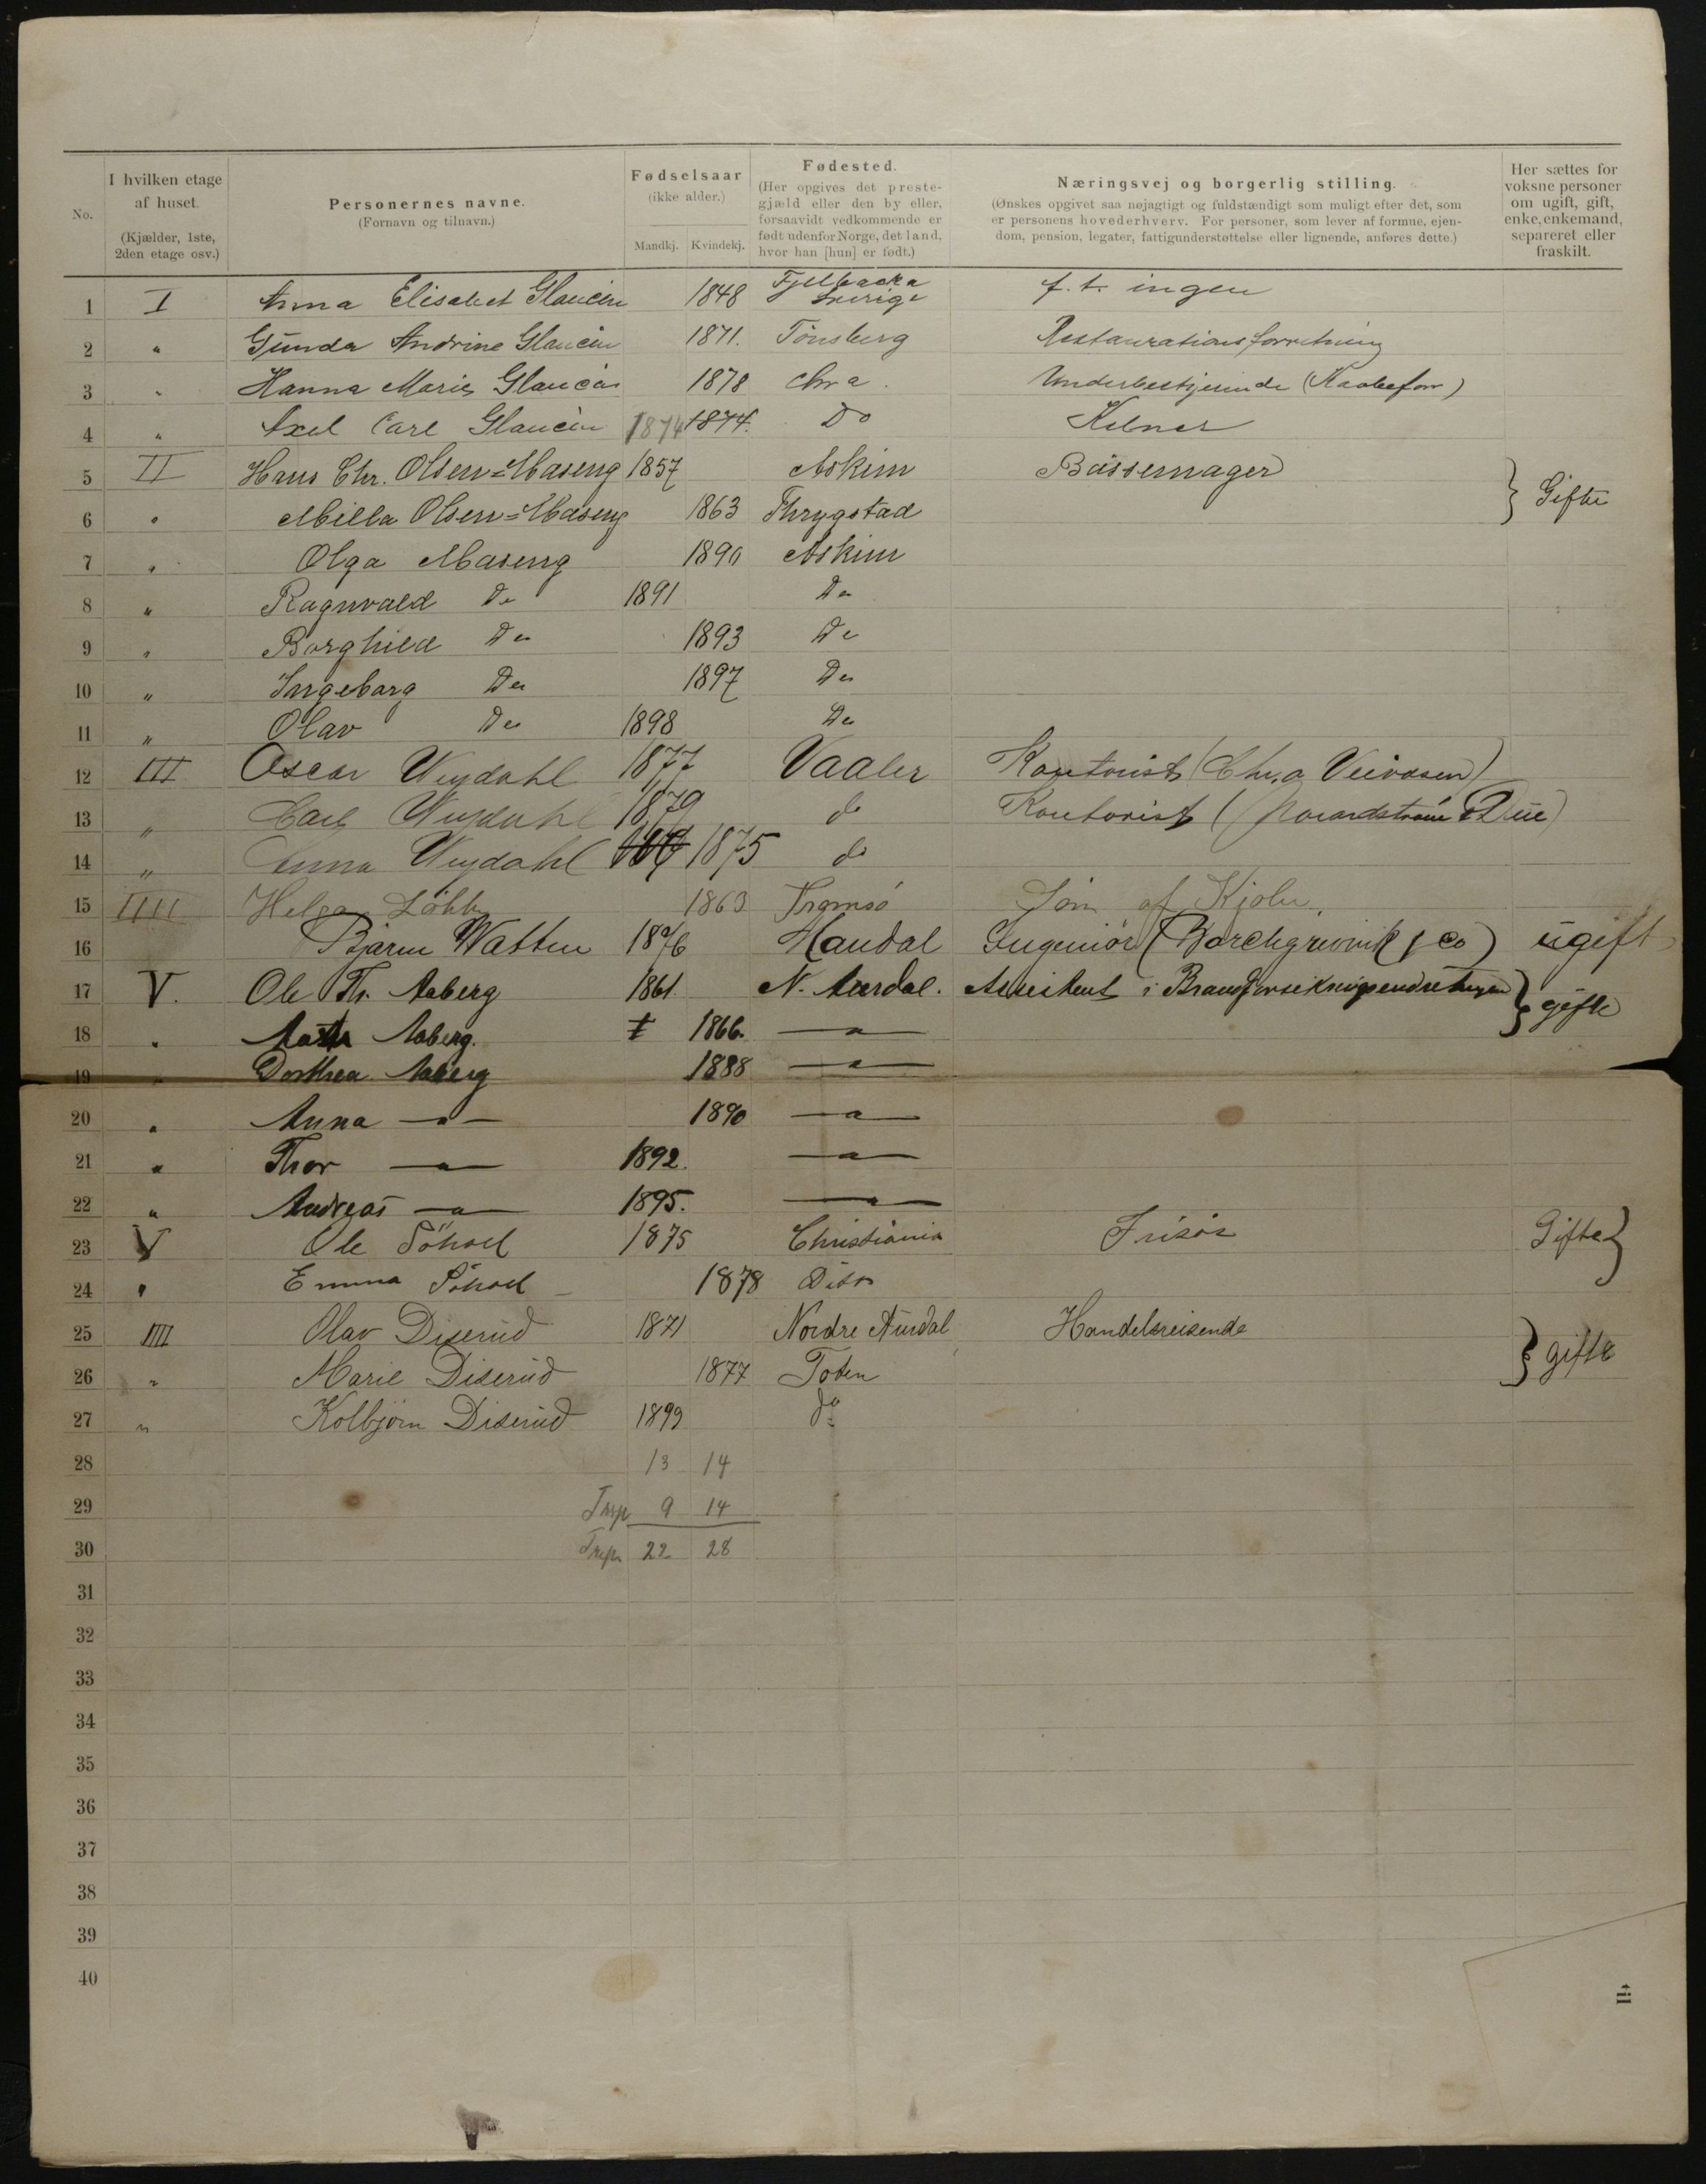 No. I hvilken etage af huset. (Kjælder, 1ste, 2den etage osv.) Personernes navne. (Fornavn og tilnavn.) Fødselsaar (ikke alder.) Mandkj. Kvindekj. Fødested. (Her opgives det prestegjæld eller den by eller, forsaavidt vedkommende er født udenfor Norge, det land, hvor han [hun] er født.) Næringsvej og borgerlig stilling. (Ønskes opgivet saa nøjagtigt og fuldstændigt som muligt efter det, som er personens hovederhverv. For personer, som lever af formue, ejendom, pension, legater, fattigunderstøttelse eller lignende, anføres dette.) Her sættes for voksne personer om ugift, gift, enke, enkemand, separeret eller fraskilt.
1 I Anna Elisabet Glaucén 1848 Fjellbacka Sverige f. t. ingen
2 " Gunda Andrine Glaucén 1871. Tønsberg Restaurationsforretning
3 " Hanna Marie Glaucén 1878 Chra. Underbestyrerinde
4 " Axel Carl Glaucén 1874 1874. Do Kelner
5 II Hans Chr. Olsen=Maseng 1857 Askim Bøssemager } Gifte
6 " Milla Olsen=Maseng 1863 Thrygstad
7 " Olga Maseng 1890 Askim
8 " Ragnvald Do 1891 Do
9 " Borghild Do 1893 Do
10 " Ingeborg Do 1897 Do
11 " Olav Do 1898 Do
12 III Oscar Wiydahl 1877 Vaaler Kontorist (Chr.a Veivæsen)
13 " Carl Wiydahl 1879 do Kontorist
14 " Anna Wiydahl 1875 do
15 IIII Helga 1863 Tromsø Søm af Kjoler.
16 Bjarne Watten 1876 Mandal Ingeniør (Borchgrevink & co) ugift
17 V. Ole Th. Aaberg 1861. N. Aurdal. Assistent i Brandforsikringsindretningen } gifte
18 " Aaberg. 1866. — " —
19 " Dorthea Aaberg 1888 — " —
20 " Anna — " — 1890 — " —
21 " Thor — " — 1892. — " —
22 " Andreas — " — 1895. — " —
23 V Ole Söhoel 1875 Christiania Frisør Gifte }
24 " Emma Söhoel 1878 Dito
25 IIII Olav Diserud 1871 Nordre Aurdal Handelsreisende } gifte
26 " Marie Diserud 1877 Toten
27 " Kolbjørn Diserud 1899 do
28 13 14
29 Trsp 9 14
30 Trsp 22 28
31
32
33
34
35
36
37
38
39
40